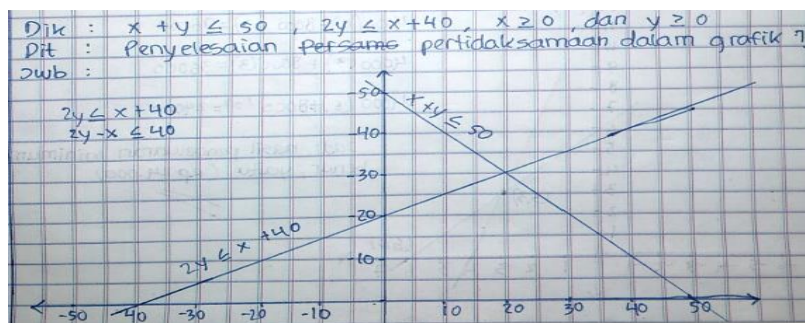 Dik : x + y ≤ 50 , 2y ≤ x + 40 , x ≥ 0 , dan y ≥ 0
Dit : Penyelesaian Persama pertidaksamaan dalam grafik ?
Jwb :
2y ≤ x + 40
2y - x ≤ 40
50
+ xy ≤ 50
40
30
20
2y ≤ x + 40
10
-50 -40 -30 -20 -10 10 20 30 40 50